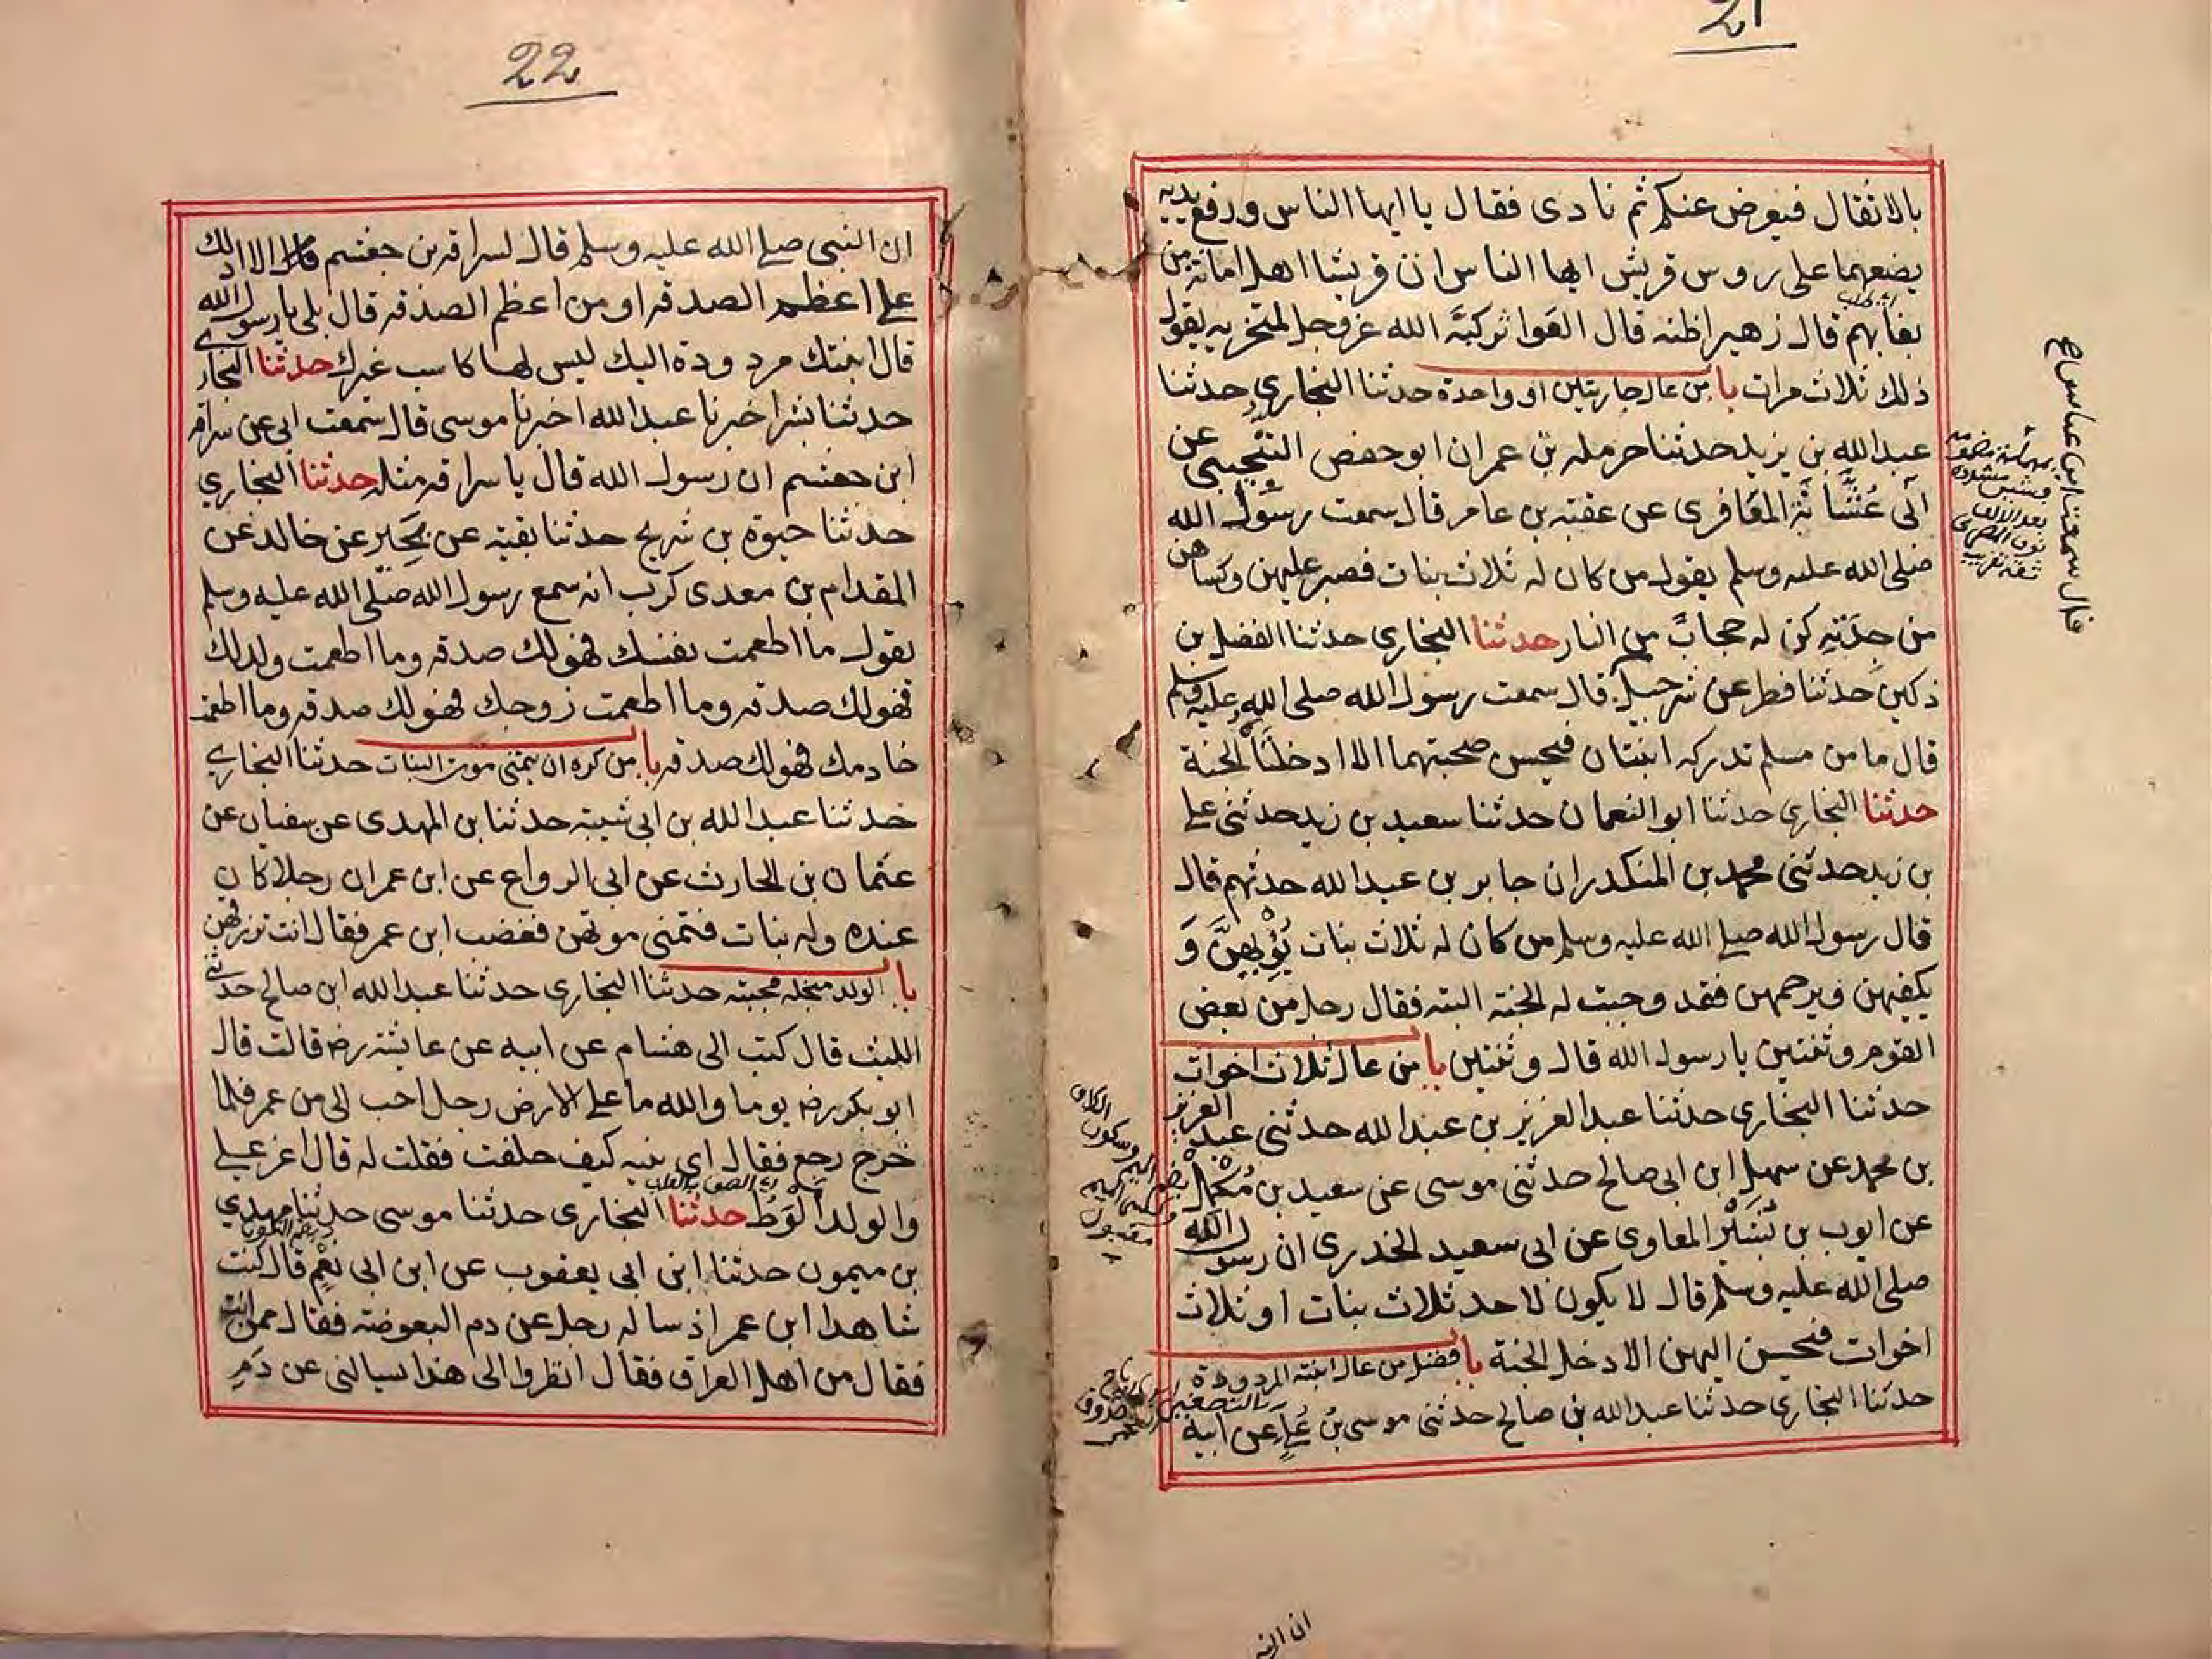 21
بالاثقال فيعرض عنكم ثم نادى فقال يا ايها الناس ورفع يديه
يضعهما على روس قريش ايها الناس ان قريشا اهل امانة من
بغا بهم قال زهير اظنه قال العواثر كبه الله عزوجل لمنخريه يقول
ذلك ثلاث مرات باب من عال جاريتين او واحدة حدثنا البخاري حدثنا
عبد الله بن يزيد حدثنا حرملة بن عمران ابو حفص التجيبي عن
ابى عشانة المعافرى عن عقبة بن عامر قال سمعت رسول الله
صلى الله عليه وسلم يقول من كان له ثلاث بنات فصبر عليهن وكساهن
من جدته كن له حجابا من النار حدثنا البخارى حدثنا الفضل بن
دكين حدثنا فطر عن شرحبيل قال سمعت رسول الله صلى الله عليه وسلم
قال ما من مسلم تدركه ابنتان فيحسن صحبتهما الا ادخلتا الجنة
حدثنا البخارى حدثنا ابو النعمان حدثنا سعيد بن زيد حدثنى على
بن زيد حدثنى محمد بن المنكدر ان جابر بن عبد الله حدثهم قال
قال رسول الله صلى الله عليه وسلم من كان له ثلاث بنات يؤويهن و
يكفيهن ويرحمهن فقد وجبت له الجنة البتة فقال رجل من بعض
القوم وثنتين يا رسول الله قال وثنتين باب من عال ثلاث اخوات
حدثنا البخارى حدثنا عبد العزيز بن عبد الله حدثنى عبد العزيز
بن محمد عن سهيل ابن ابى صالح حدثنى موسى عن سعيد بن مكمل
عن ايوب بن بشير المعاوى عن ابى سعيد الخدرى ان رسول الله
صلى الله عليه وسلم قال لا يكون لاحد ثلاث بنات او ثلاث
اخوات فيحسن اليهن الا دخل الجنة باب فضل من عال ابنته المردودة
حدثنا البخارى حدثنا عبد الله بن صالح حدثنى موسى بن على عن ابيه
قال سمعت ابن عباس
ان النبي
22
ان النبى صلى الله عليه وسلم قال لسراقة بن جعشم الا ادلك
على اعظم الصدقة او من اعظم الصدقة قال بلى يا رسول الله
قال ابنتك مردودة اليك ليس لها كاسب غيرك حدثنا البخارى
حدثنا بشر اخبرنا عبد الله اخبرنا موسى قال سمعت ابى عن سراقة
ابن جعشم ان رسول الله قال يا سراقة مثله حدثنا البخاري
حدثنا حيوة بن شريح حدثنا بقية عن بحير عن خالد عن
المقدام بن معدى كرب انه سمع رسول الله صلى الله عليه وسلم
يقول ما اطعمت نفسك فهو لك صدقة وما اطعمت ولدك
فهو لك صدقة وما اطعمت زوجك فهو لك صدقة وما اطعمت
خادمك فهو لك صدقة باب من كره ان يتمنى موت البنات حدثنا البخاري
حدثنا عبد الله بن ابى شيبة حدثنا بن المهدى عن سفيان عن
عثمان بن الحارث عن ابى الرواع عن ابن عمر ان رجلا كان
عنده وله بنات فتمنى موتهن فغضب ابن عمر فقال انت ترزقهن
باب الولد مبخلة مجبنة حدثنا البخارى حدثنا عبد الله ابن صالح حدثنى
الليث قال كتب الى هشام عن ابيه عن عايشة رض قالت قال
ابو بكر رض يوما والله ما على الارض رجل احب الى من عمر فلما
خرج رجع فقال اى بنية كيف حلفت فقلت له قال اعز على
والولد الوط حدثنا البخارى حدثنا موسى حدثنا مهدي
بن ميمون حدثنا ابن ابى يعقوب عن ابن ابى نعم قال كنت
شاهدا ابن عمر اذ ساله رجل عن دم البعوضة فقال ممن انت
فقال من اهل العراق فقال انظروا الى هذا يسالنى عن دم